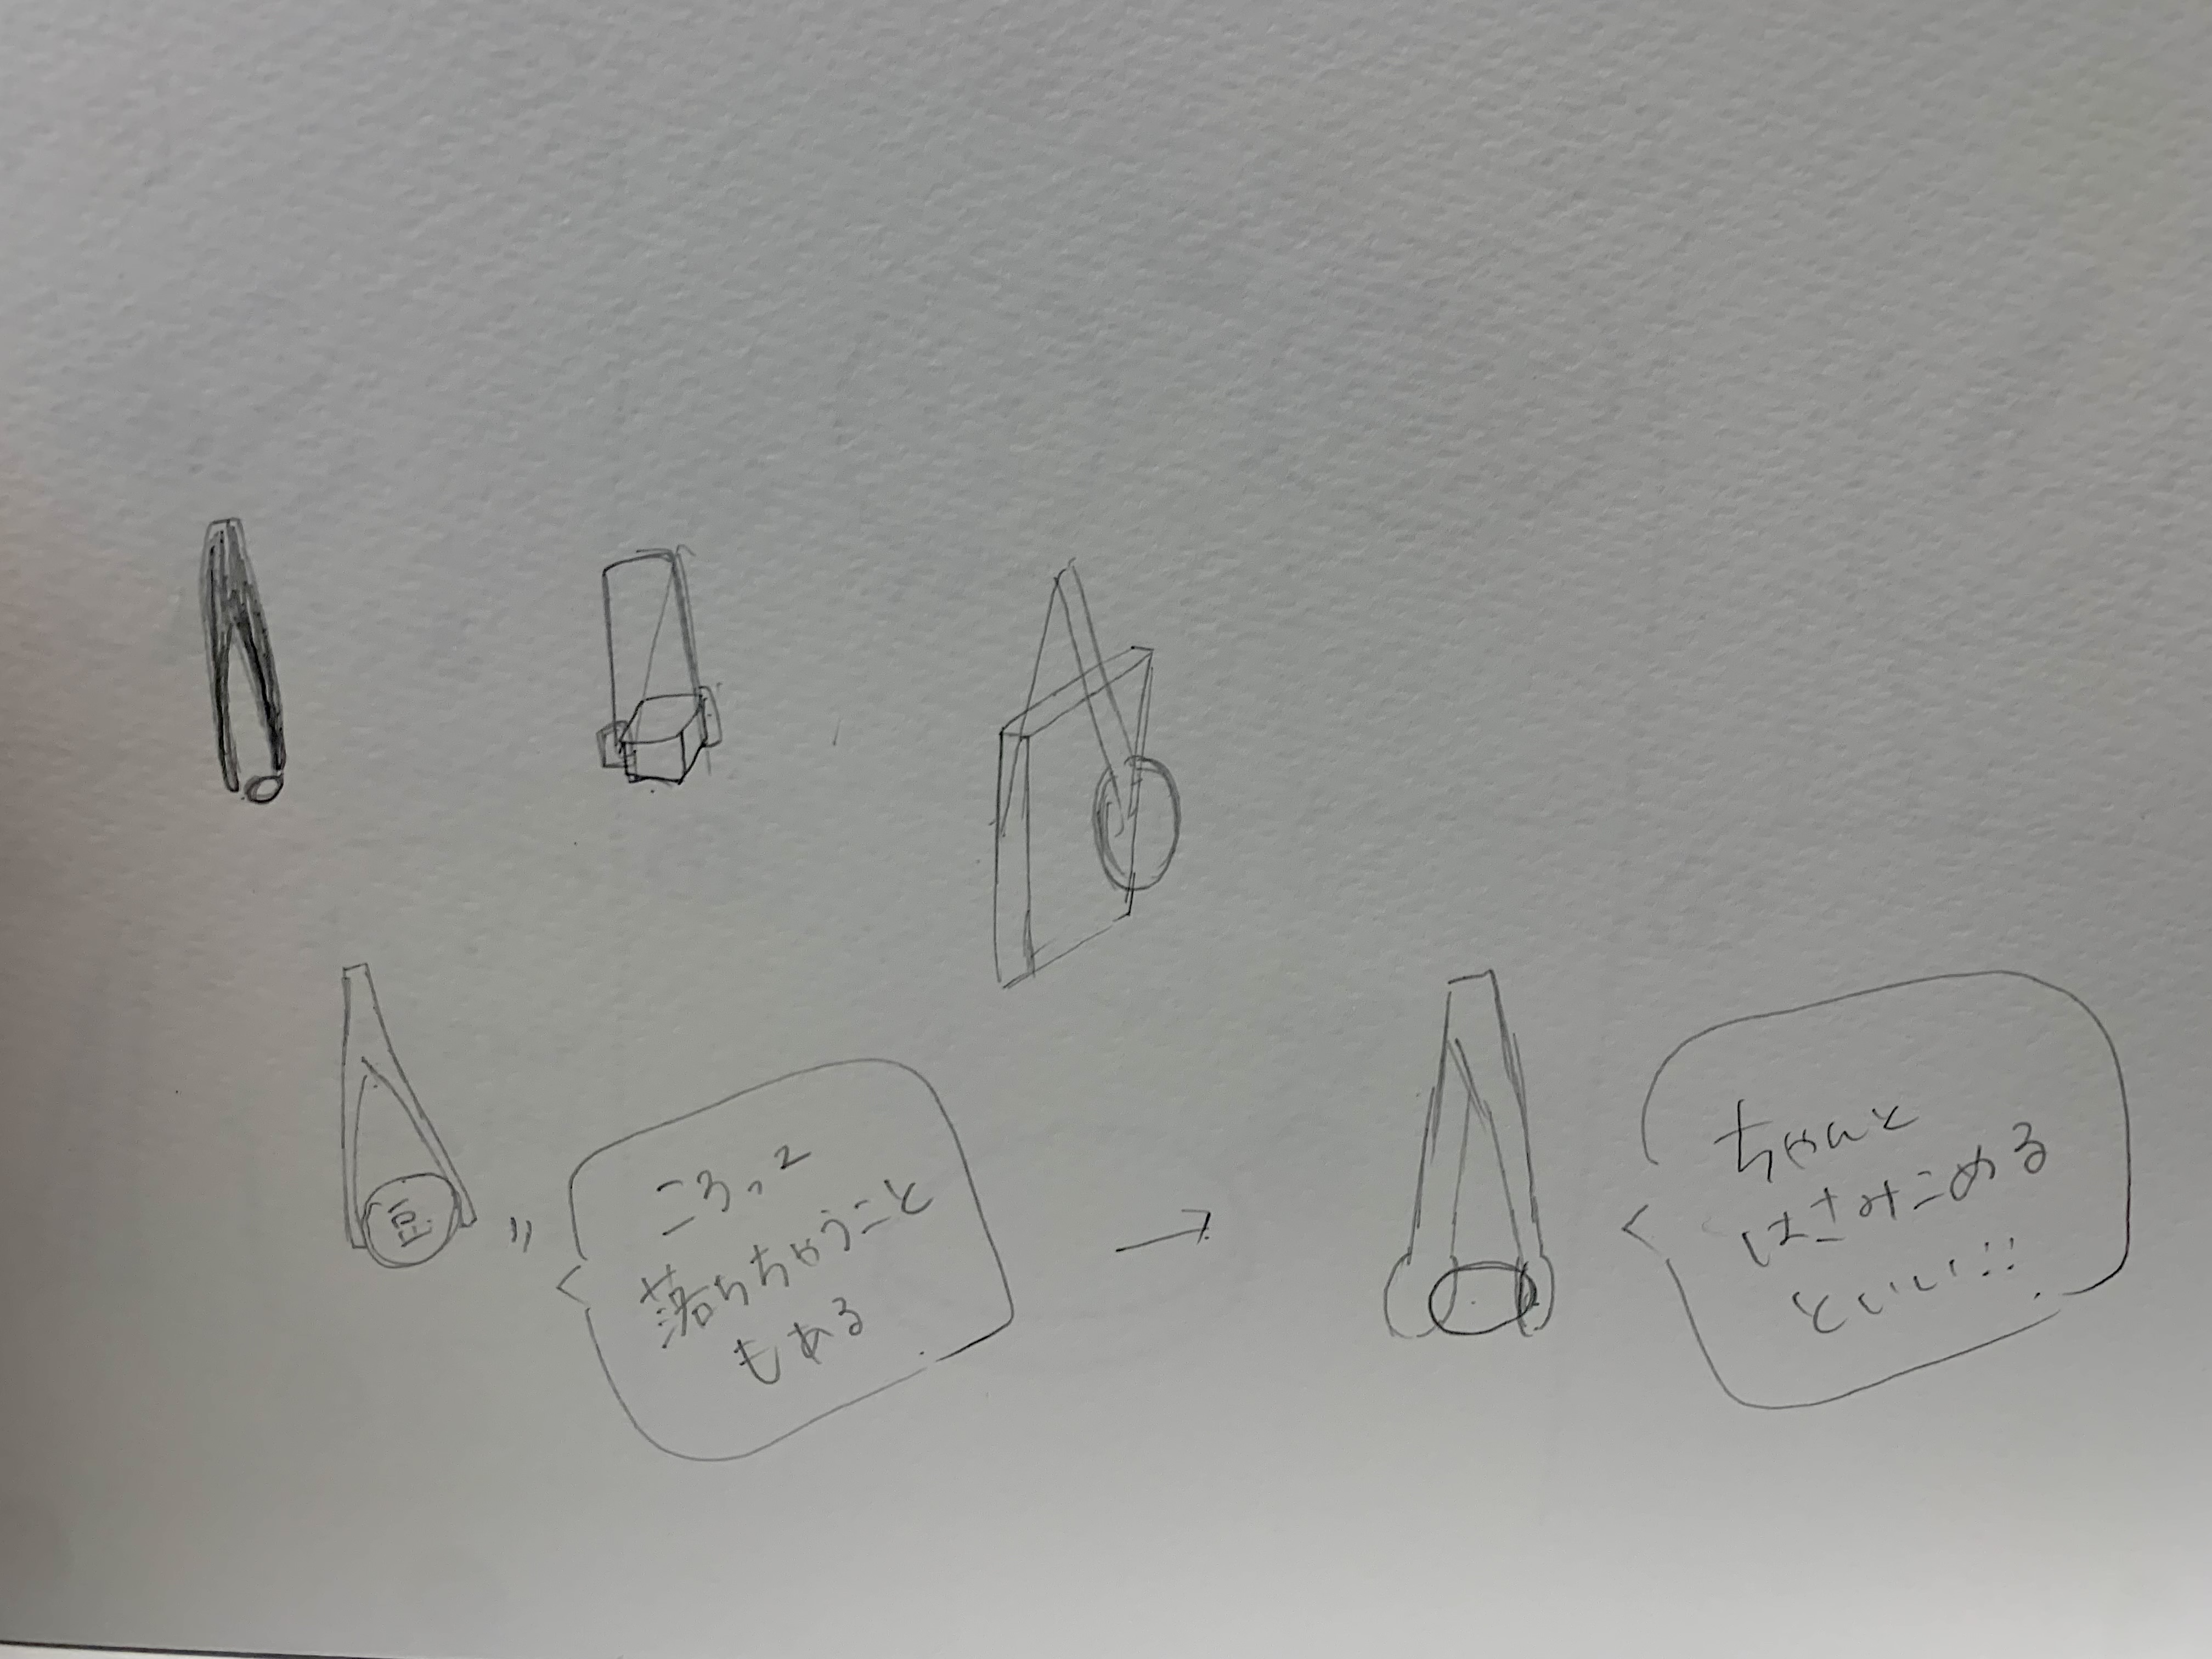 豆
ころっ2
落ちちゃうこと
もある
→
ちゃんと
はさみこめる
といい!!